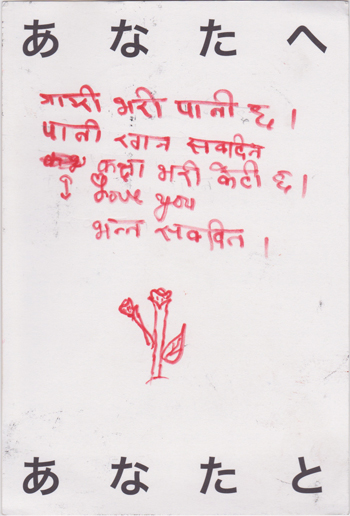 あなたへ
गाग्री भरी पानी छ।
पानी खान सकदिन
कक्षा भरी केटी छ।
I Love you
भन्न सकदिन।
あなたと